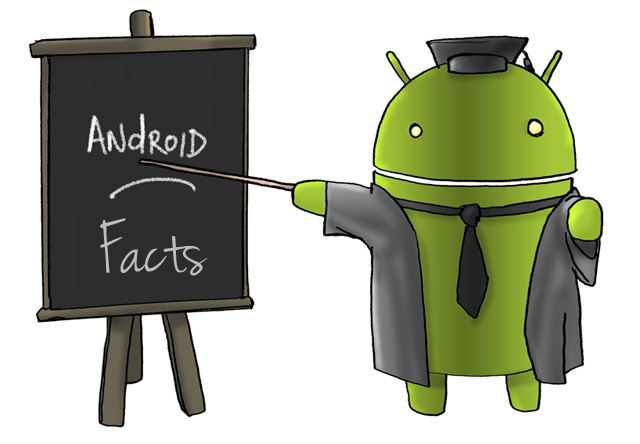 ANdROID
Facts